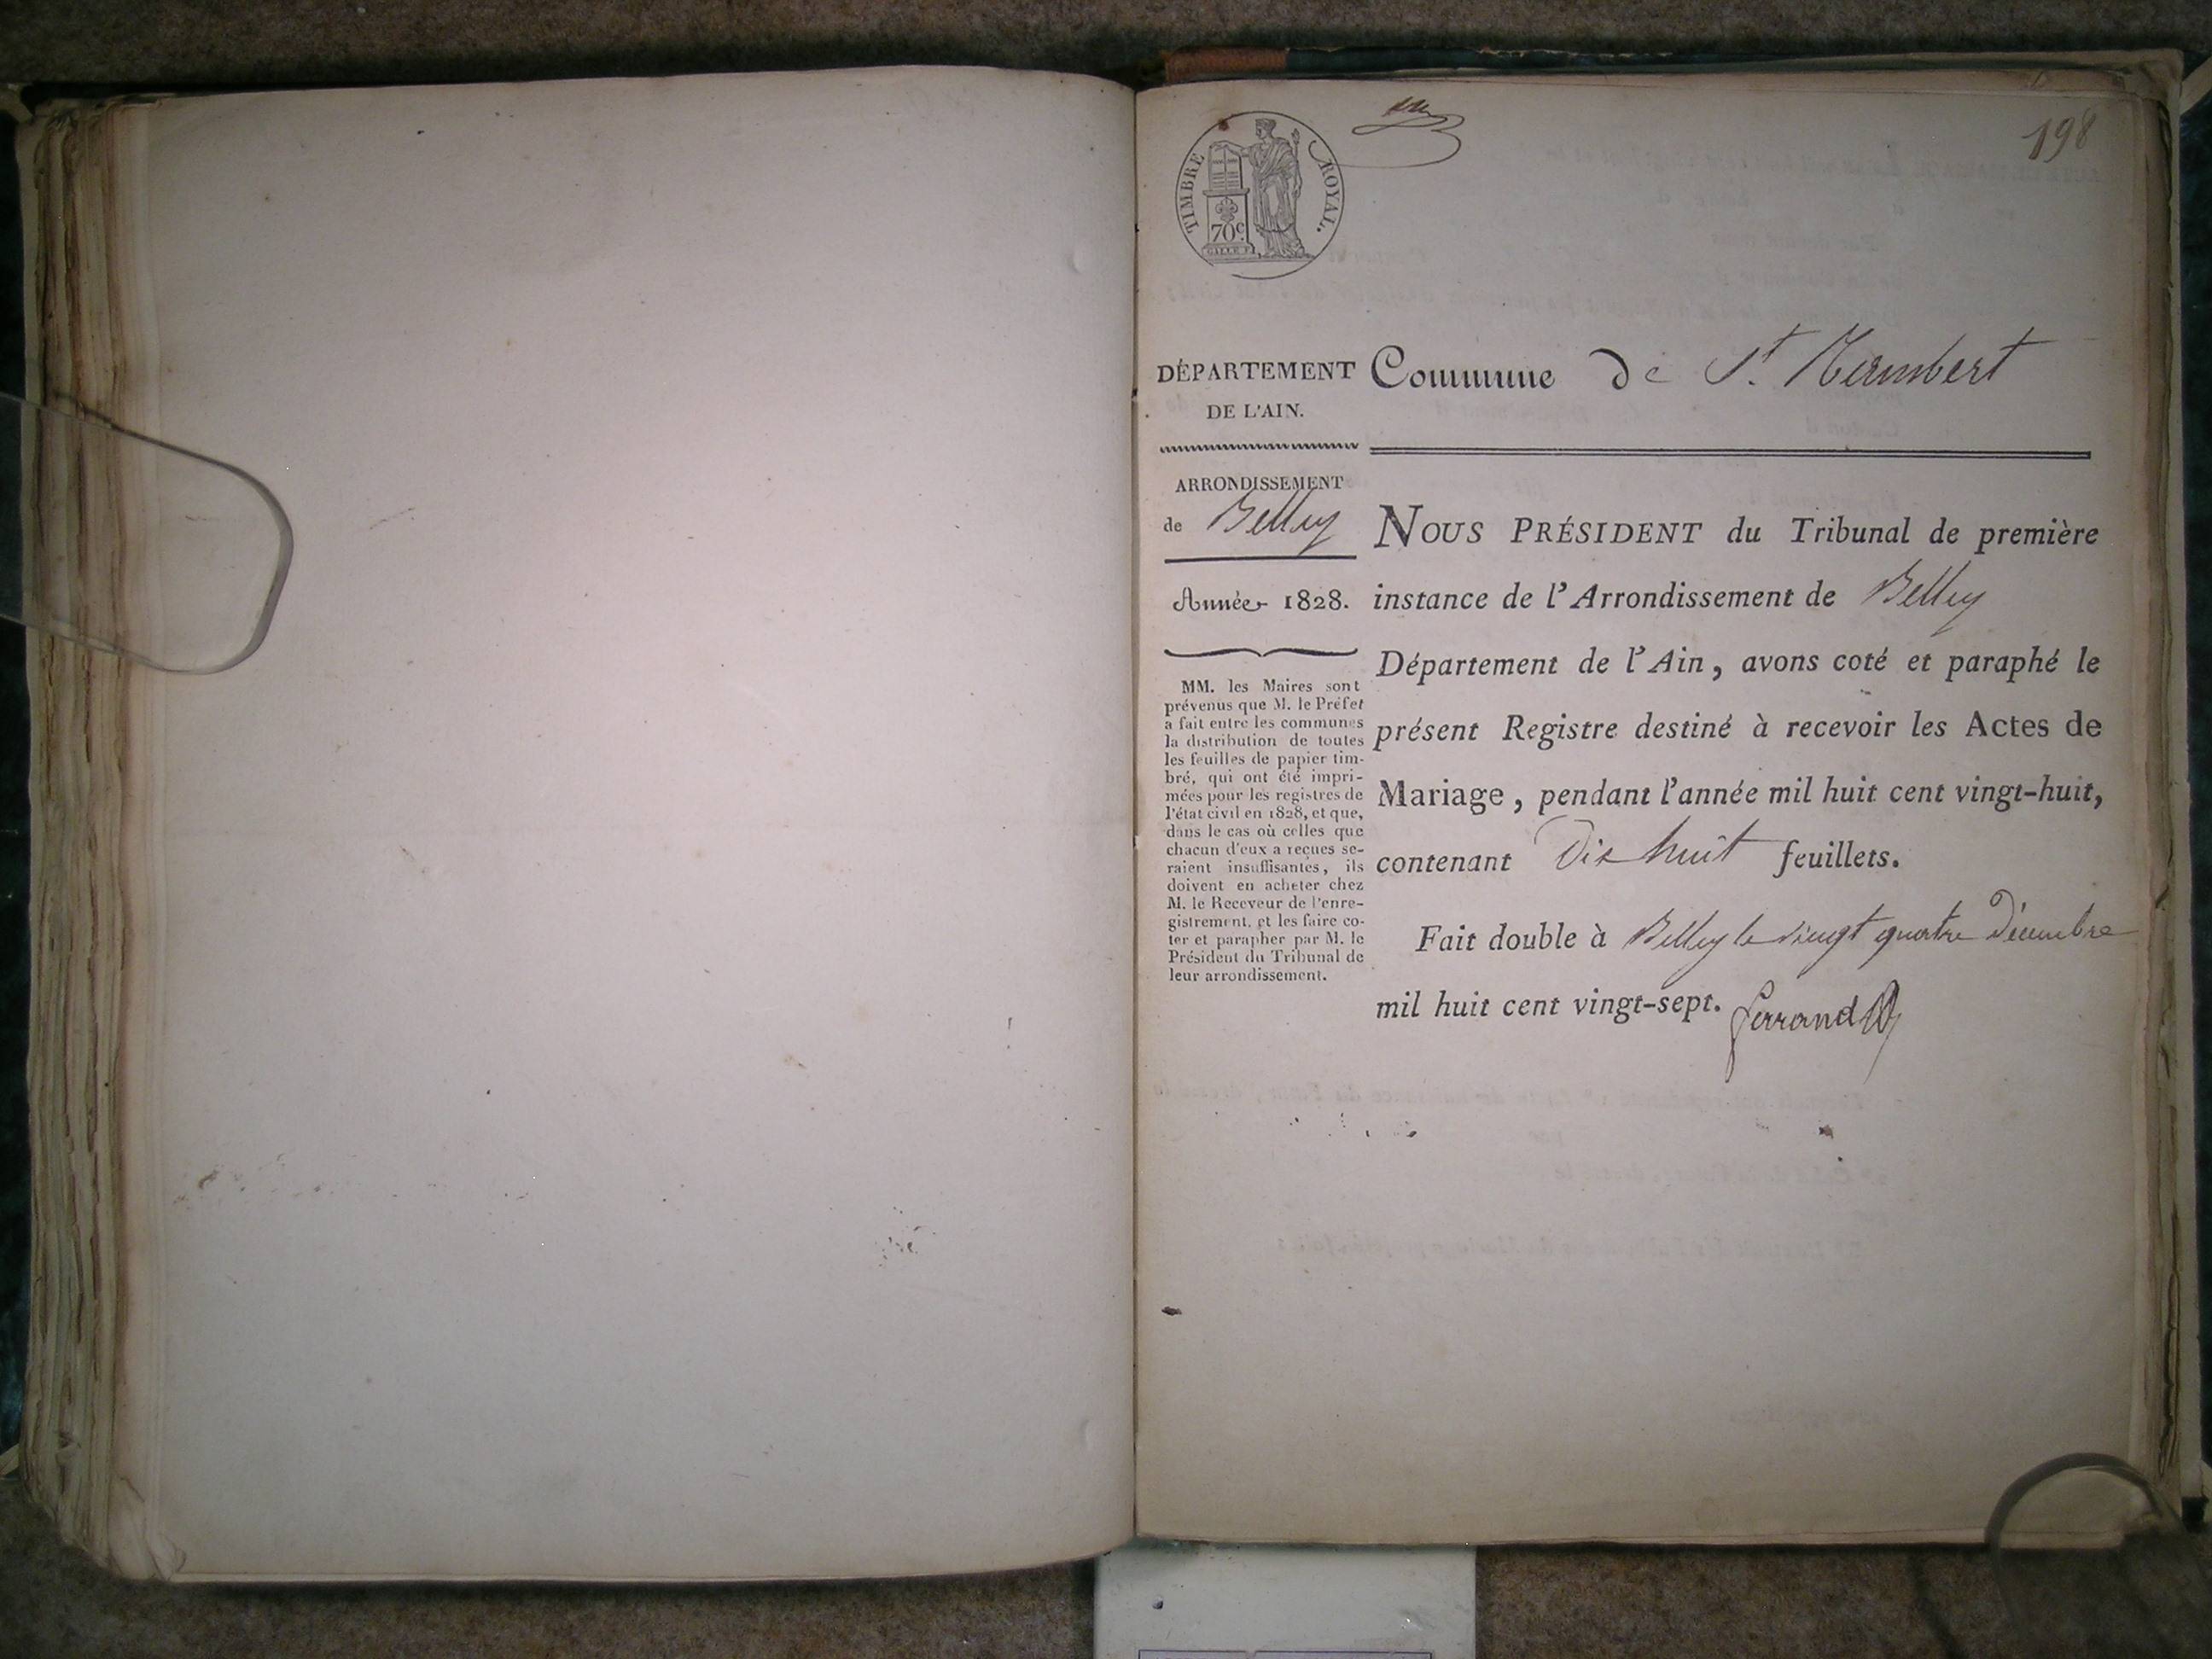 198
TIMBRE ROYAL.
70c.
GALLE F.
DÉPARTEMENT
DE L'AIN.
Commune de St. Rambert
ARRONDISSEMENT
de Belley
Année 1828.
MM. les Maires sont
prévenus que M. le Préfet
a fait entre les communes
la distribution de toutes
les feuilles de papier tim-
bré, qui ont été impri-
mées pour les registres de
l'état civil en 1828, et que,
dans le cas où celles que
chacun d'eux a reçues se-
raient insuffisantes, ils
doivent en acheter chez
M. le Receveur de l'enre-
gistrement, et les faire co-
ter et parapher par M. le
Président du Tribunal de
leur arrondissement.
NOUS PRÉSIDENT du Tribunal de première
instance de l'Arrondissement de Belley
Département de l'Ain, avons coté et paraphé le
présent Registre destiné à recevoir les Actes de
Mariage, pendant l'année mil huit cent vingt-huit,
contenant Dix huit feuillets.
Fait double à Belley le vingt quatre Décembre
mil huit cent vingt-sept. Ferrand